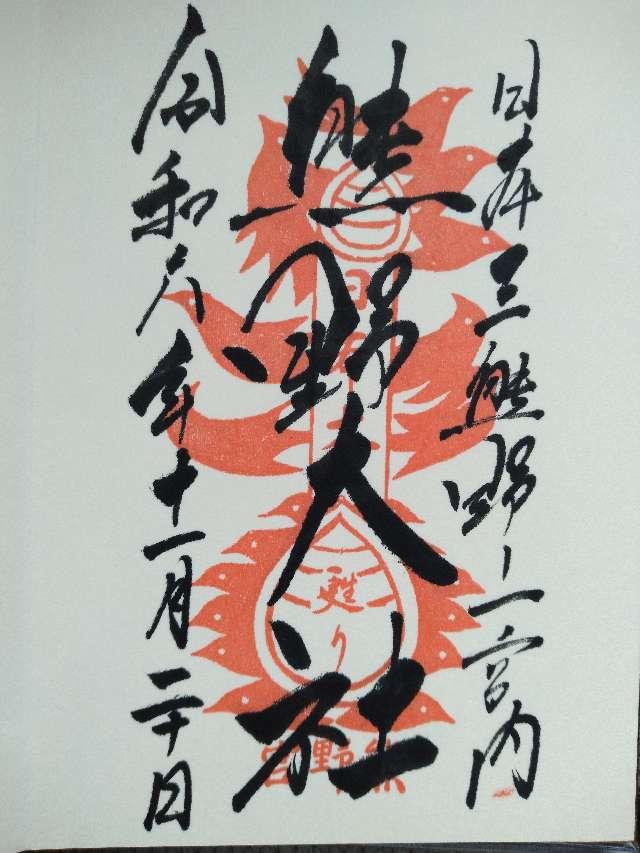 日本三熊野ノ一宮内
熊野大社
令和六年十一月二十日
甦り